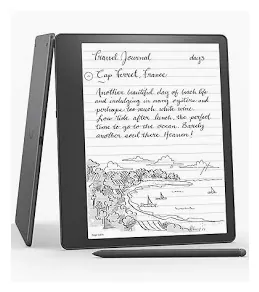 Travel Journal days
Cap Ferret, France
Another beautiful day of beach life
and indulging in many oysters and
perhaps too much white wine.
ride after lunch, the perfect
time to go to the ocean. Barely
another soul there. Heaven!